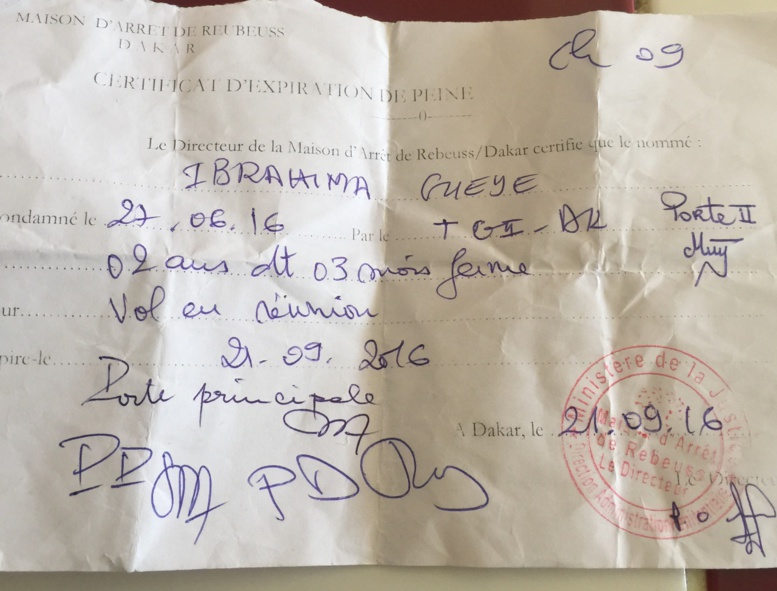 MAISON D'ARRET DE REUBEUSS
DAKAR
Ch 09
CERTIFICAT D'EXPIRATION DE PEINE
-------0-------
Le Directeur de la Maison d'Arrêt de Rebeuss/Dakar certifie que le nommé :
IBRAHIMA GUEYE
ondamné le 27.06.16 Par le TGI-DK
Porte II
02 ans dt 03 mois ferme
ur Vol en réunion
pire-le 21.09.2016
Porte principale
A Dakar, le 21.09.16
Le Directe
Ministère de la Justice
Direction Administration Pénitentiaire
Maison d'Arrêt
de Rebeuss
Le Directeur
PD